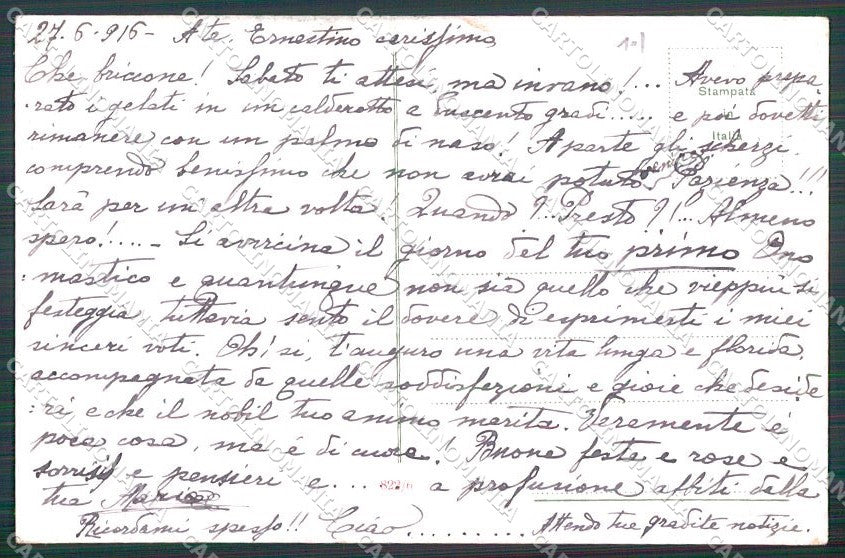 27.6.916 - A te. Ernestino carissimo,
Che briccone! Sabato ti attesi, ma invano!... Avevo prepa
rato i gelati in un calderotto a duecento gradi..... e poi dovetti
Stampata
in
Italia
rimanere con un palmo di naso! A parte gli scherzi
comprendo benissimo che non avrai potuto venire. Pazienza!!!
Sarà per un'altra volta. Quando?.. Presto?!... Almeno
spero!.... - Si avvicina il giorno del tuo primo Ono
:mastico e quantunque non sia quello che vieppiù si
festeggia tuttavia sento il dovere di esprimerti i miei
sinceri voti. Oh! si, t'auguro una vita lunga e florida,
accompagnata da quelle soddisfazioni e gioie che deside
:ri, e che il nobil tuo animo merita. Veramente è
poca cosa, ma è di cuore! Buone feste e rose e
sorrisi e pensieri e.... a profusione abbiti dalla
tua Maria
Ricordami spesso!! Ciao.......... Attendo tue gradite notizie.